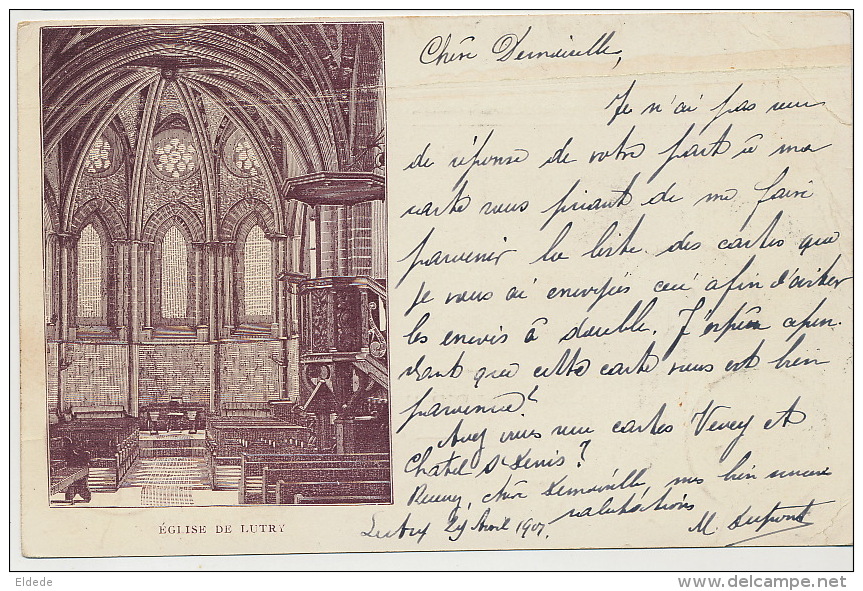 Chère Demoiselle,
Je n'ai pas reçu
de réponse de votre part à ma
carte vous priant de me faire
parvenir la liste des cartes que
je vous ai envoyées ceci afin d'éviter
les envois à double. J'espère cepen-
dant que cette carte vous est bien
parvenue?
Avez vous reçu cartes Vevey et
Chatel St Denis?
Recevez, chère Demoiselle, mes bien sincères
salutations
Lutry 29 Avril 1901 M. Dupont
ÉGLISE DE LUTRY
Eldede
delcampe.net